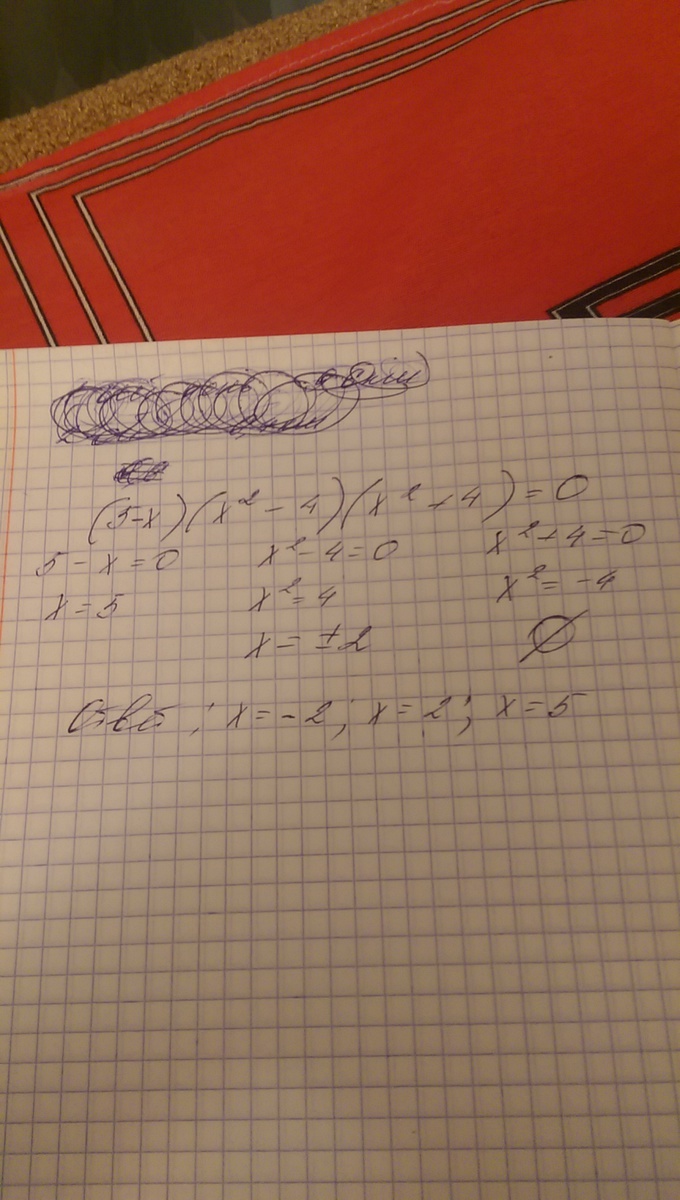 (5-x)(x²-4)(x²+4)=0
5-x=0 x²-4=0 x²+4=0
x=5 x²=4 x²=-4
x=±2 ∅
Ответ: x=-2; x=2; x=5